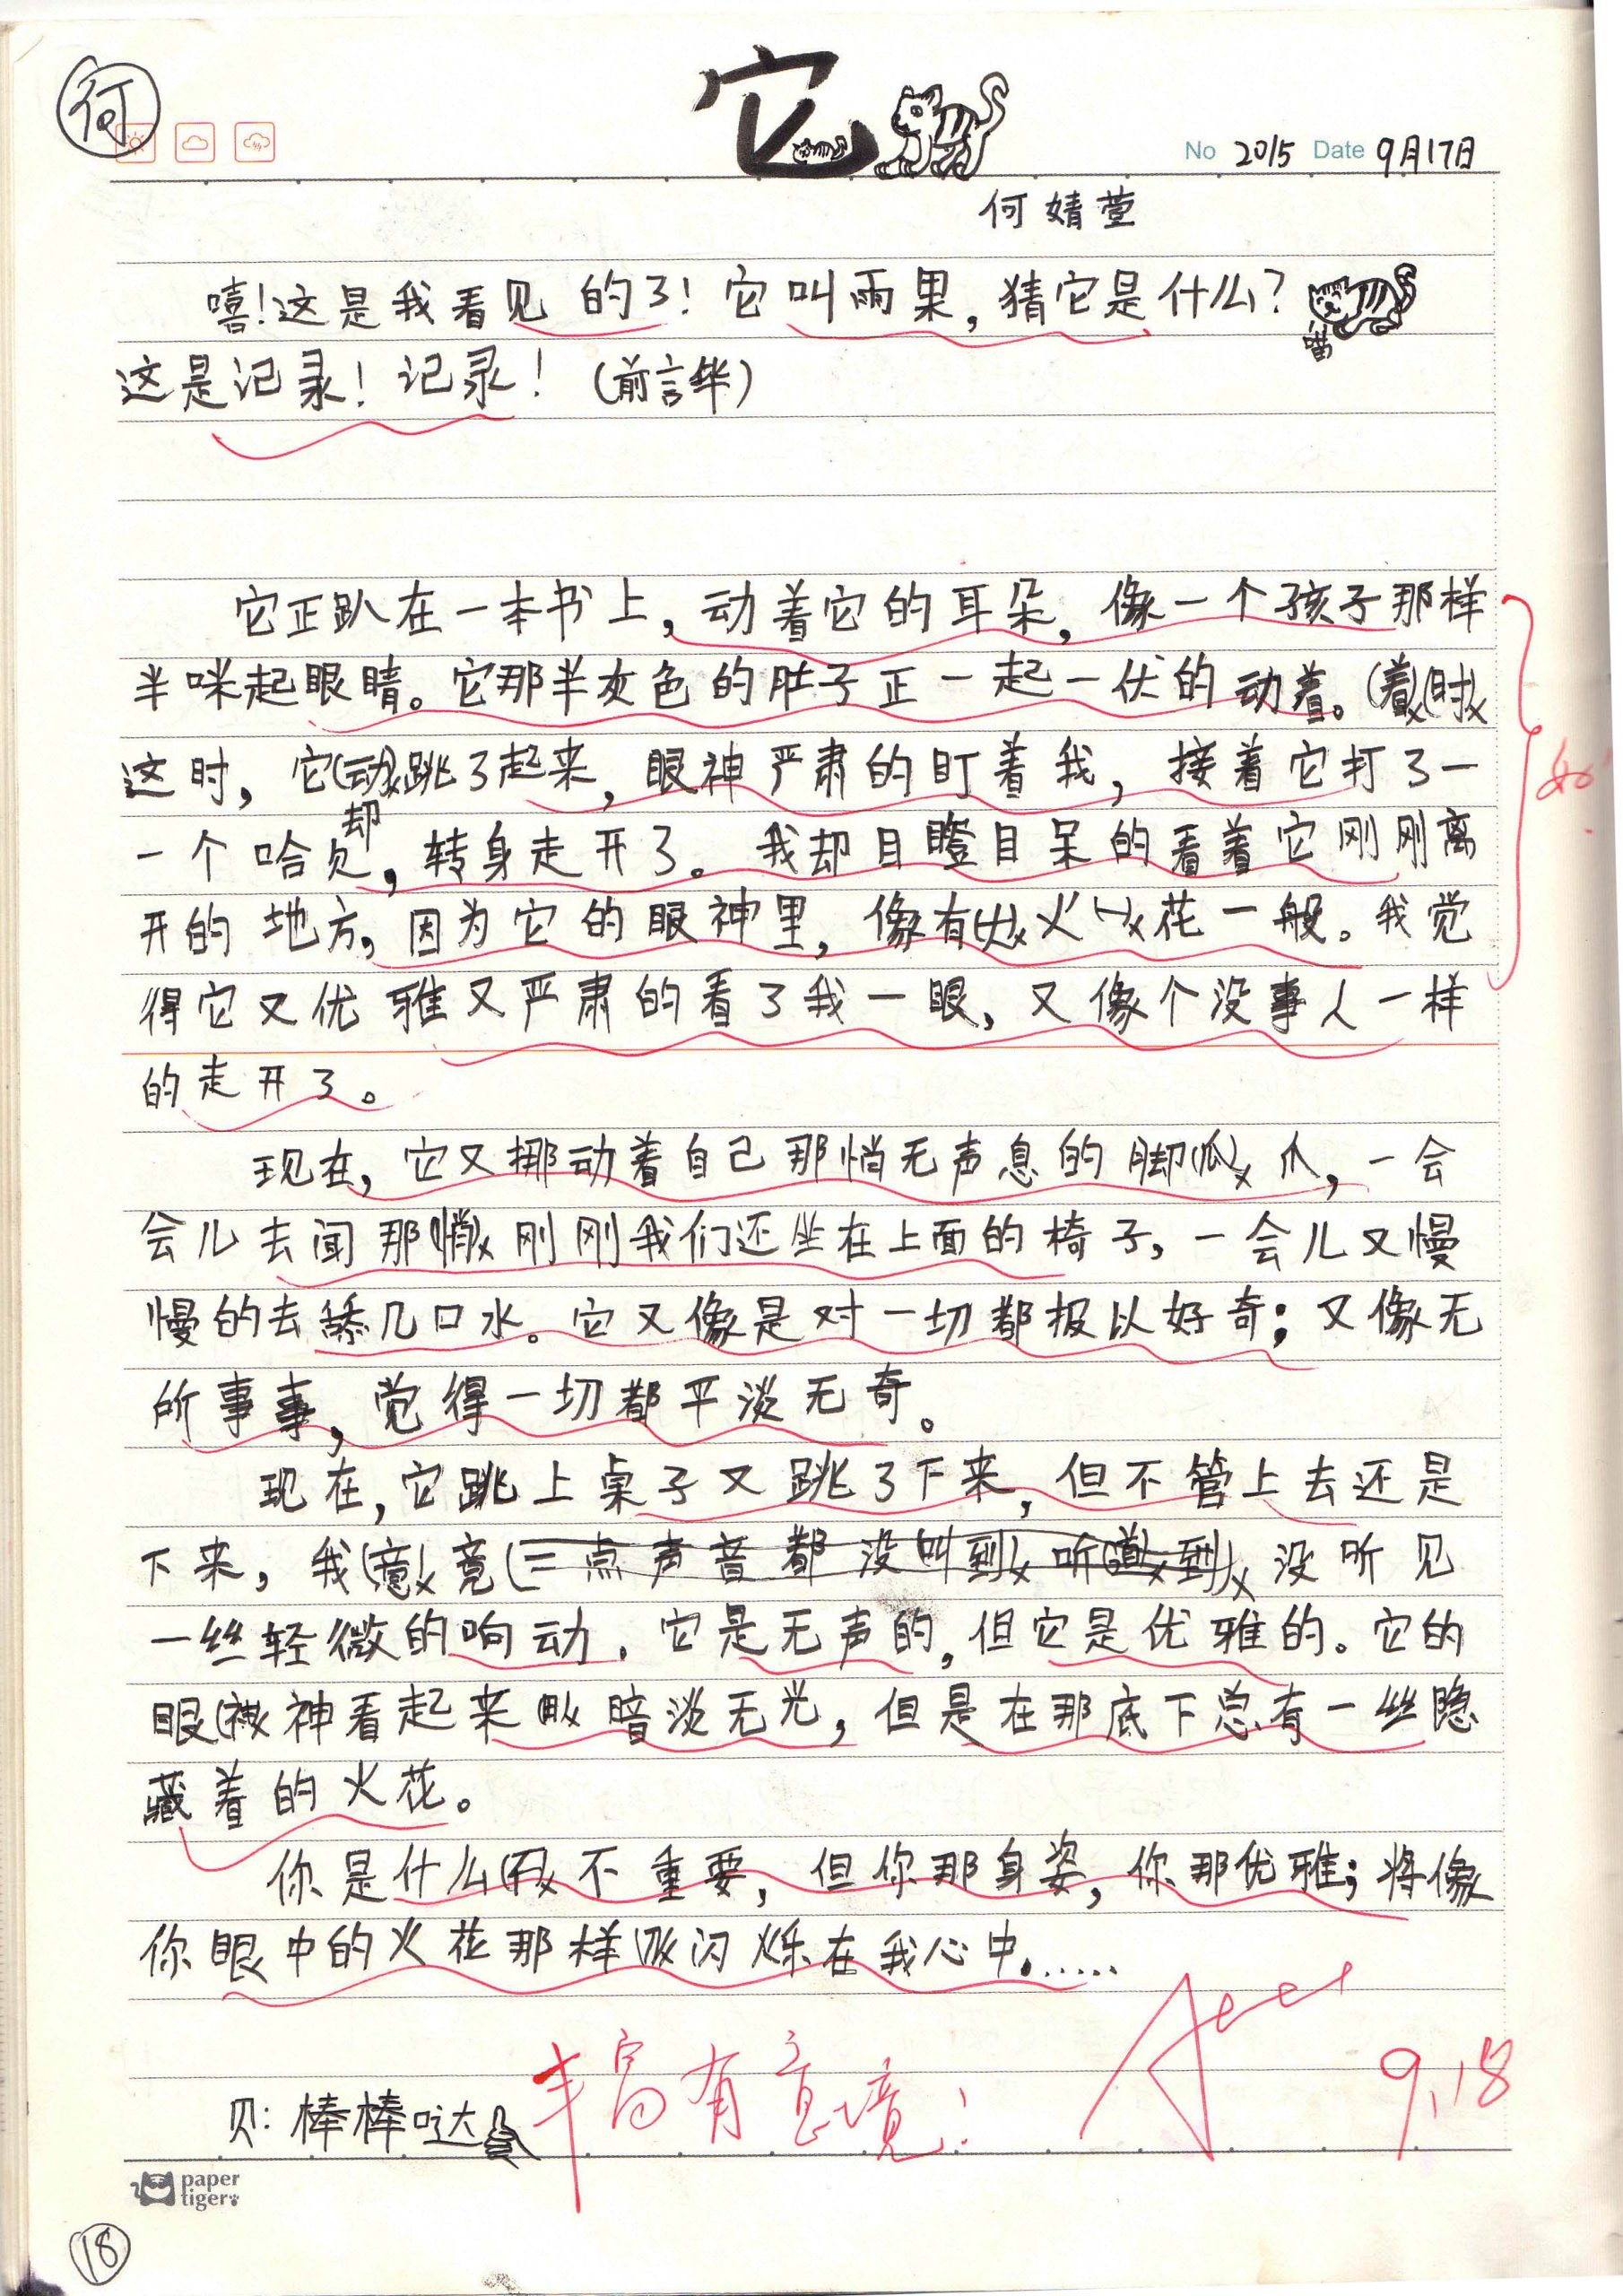 何
它
No 2015 Date 9月17日
何婧萱
嘻!这是我看见的了!它叫雨果,猜它是什么?
喵
这是记录!记录!(前言华)
它正趴在一本书上,动着它的耳朵,像一个孩子那样
半咪起眼睛。它那半灰色的肚子正一起一伏的动着。(着)(时)
这时,它(动)跳了起来,眼神严肃的盯着我,接着它打了一
却
一个哈欠,转身走开了。我却目瞪目呆的看着它刚刚离
开的地方,因为它的眼神里,像有火花一般。我觉
得它又优雅又严肃的看了我一眼,又像个没事人一样
的走开了。
现在,它又挪动着自己那悄无声息的脚(瓜)爪,一会
会儿去闻那(悄)刚刚我们还坐在上面的椅子,一会儿又慢
慢的去舔几口水。它又像是对一切都报以好奇;又像无
所事事,觉得一切都平淡无奇。
现在,它跳上桌子又跳了下来,但不管上去还是
下来,我(意)竟(一点声音都没叫到听(道)到)没听见
一丝轻微的响动.它是无声的,但它是优雅的。它的
眼神看起来暗淡无光,但是在那底下总有一丝隐
藏着的火花。
你是什么(不)不重要,但你那身姿,你那优雅;将像
你眼中的火花那样闪烁在我心中......
贝:棒棒哒
丰富有意境!
A+++
9.18
paper
tiger
18